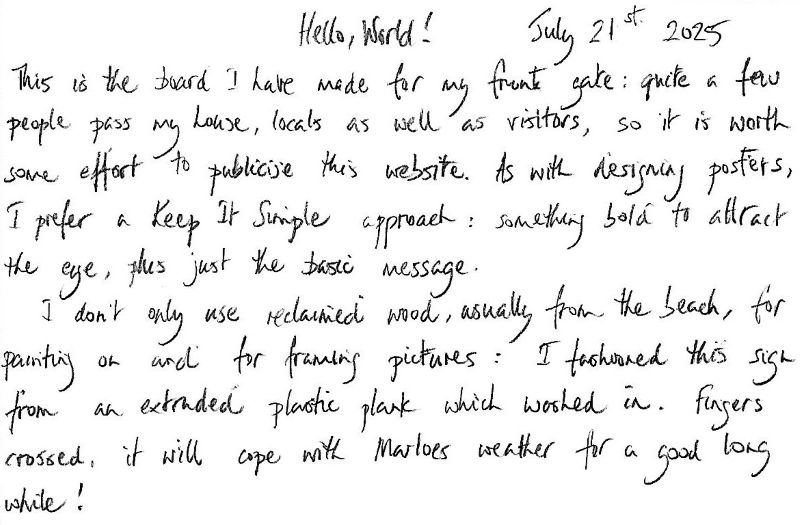 Hello, World! July 21st. 2025
This is the board I have made for my front gate: quite a few
people pass my house, locals as well as visitors, so it is worth
some effort to publicise this website. As with designing posters,
I prefer a Keep It Simple approach: something bold to attract
the eye, plus just the basic message.
I don't only use reclaimed wood, usually from the beach, for
painting on and for framing pictures: I fashioned this sign
from an extruded plastic plank which washed in. Fingers
crossed, it will cope with Marloes weather for a good long
while!